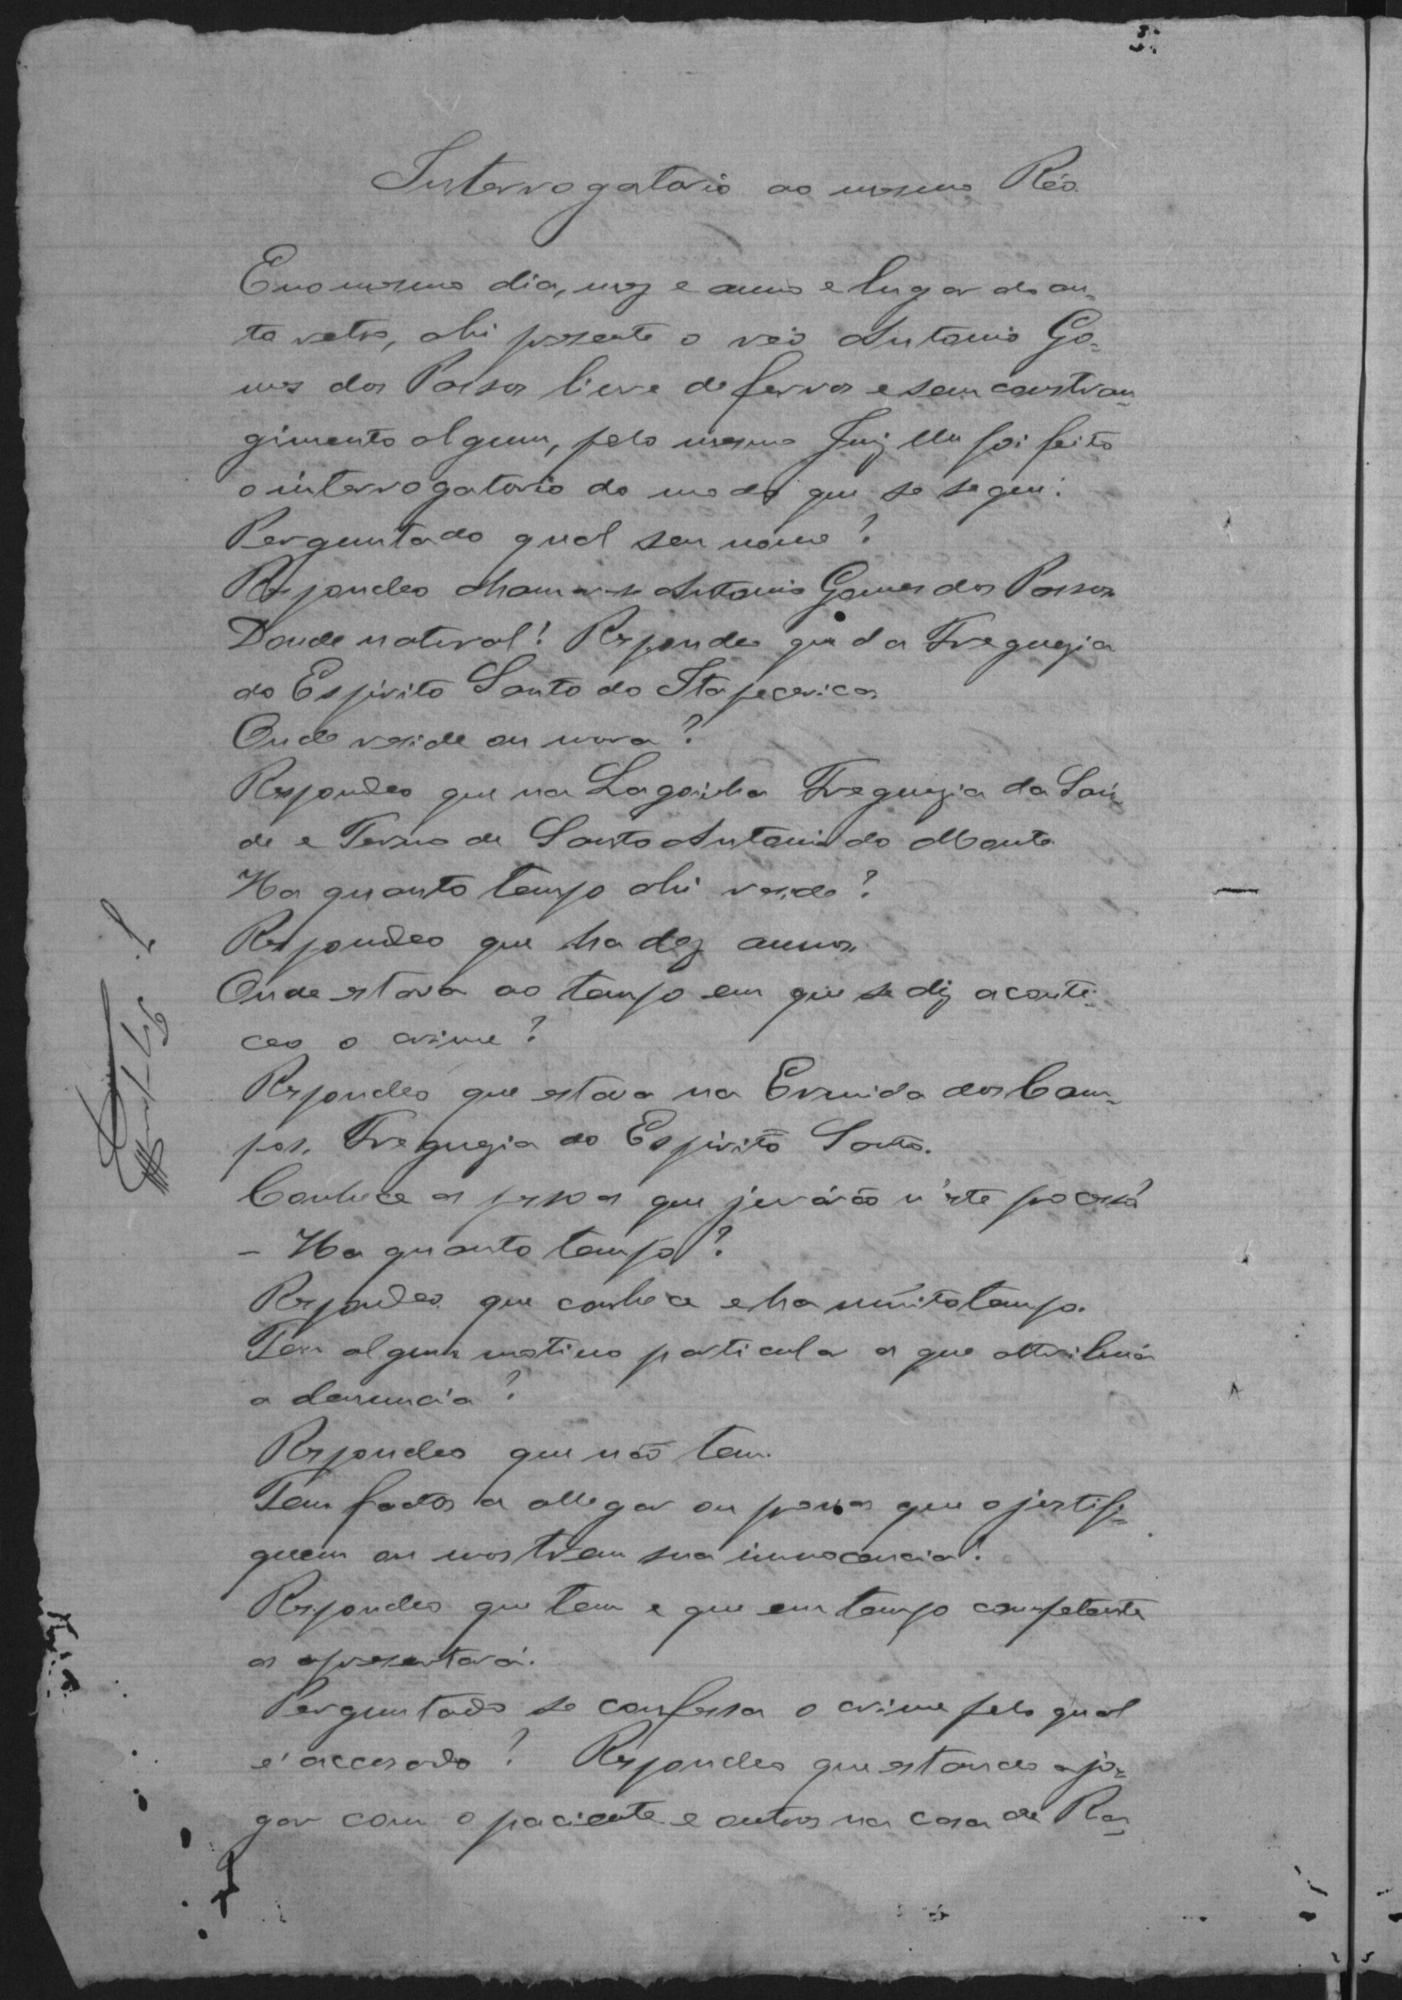 Interrogatorio ao mesmo Réo
E no mesmo dia, mez e anno e lugar do au-
to retro, ahi presente o réo Antonio Go-
mes dos Passos livre de ferros e sem constran-
gimento algum, pelo mesmo Juiz lhe foi feito
o interrogatorio do modo que se segue:
Perguntado qual seu nome?
Respondeo chamar-se Antonio Gomes dos Passos
Donde natural? Respondeo que da Freguezia
do Espirito Santo do Itapecerica
Onde reside ou mora?
Respondeo que na Lagoinha Freguezia da Saú-
de e Termo de Santo Antonio do Monte
Ha quanto tempo ahi reside?
Respondeo que ha dez annos
Onde estava ao tempo em que se diz aconte-
ceo o crime?
Respondeo que estava na Ermida dos Cam-
pos, Freguezia do Espirito Santo.
Conhece as pessoas que jurárão n'este processo?
- Ha quanto tempo?
Respondeo que conhece e ha muito tempo.
Tem algum motivo particular a que attribua
a denuncia?
Respondeo que não tem.
Tem factos a allegar ou provas que o justifi-
quem ou mostrem sua innocencia?
Respondeo que tem e que em tempo competente
as apresentará.
Perguntado se confessa o crime pelo qual
é accusado? Respondeo que estando a jo-
gar com o paciente e outros na casa de Ra-